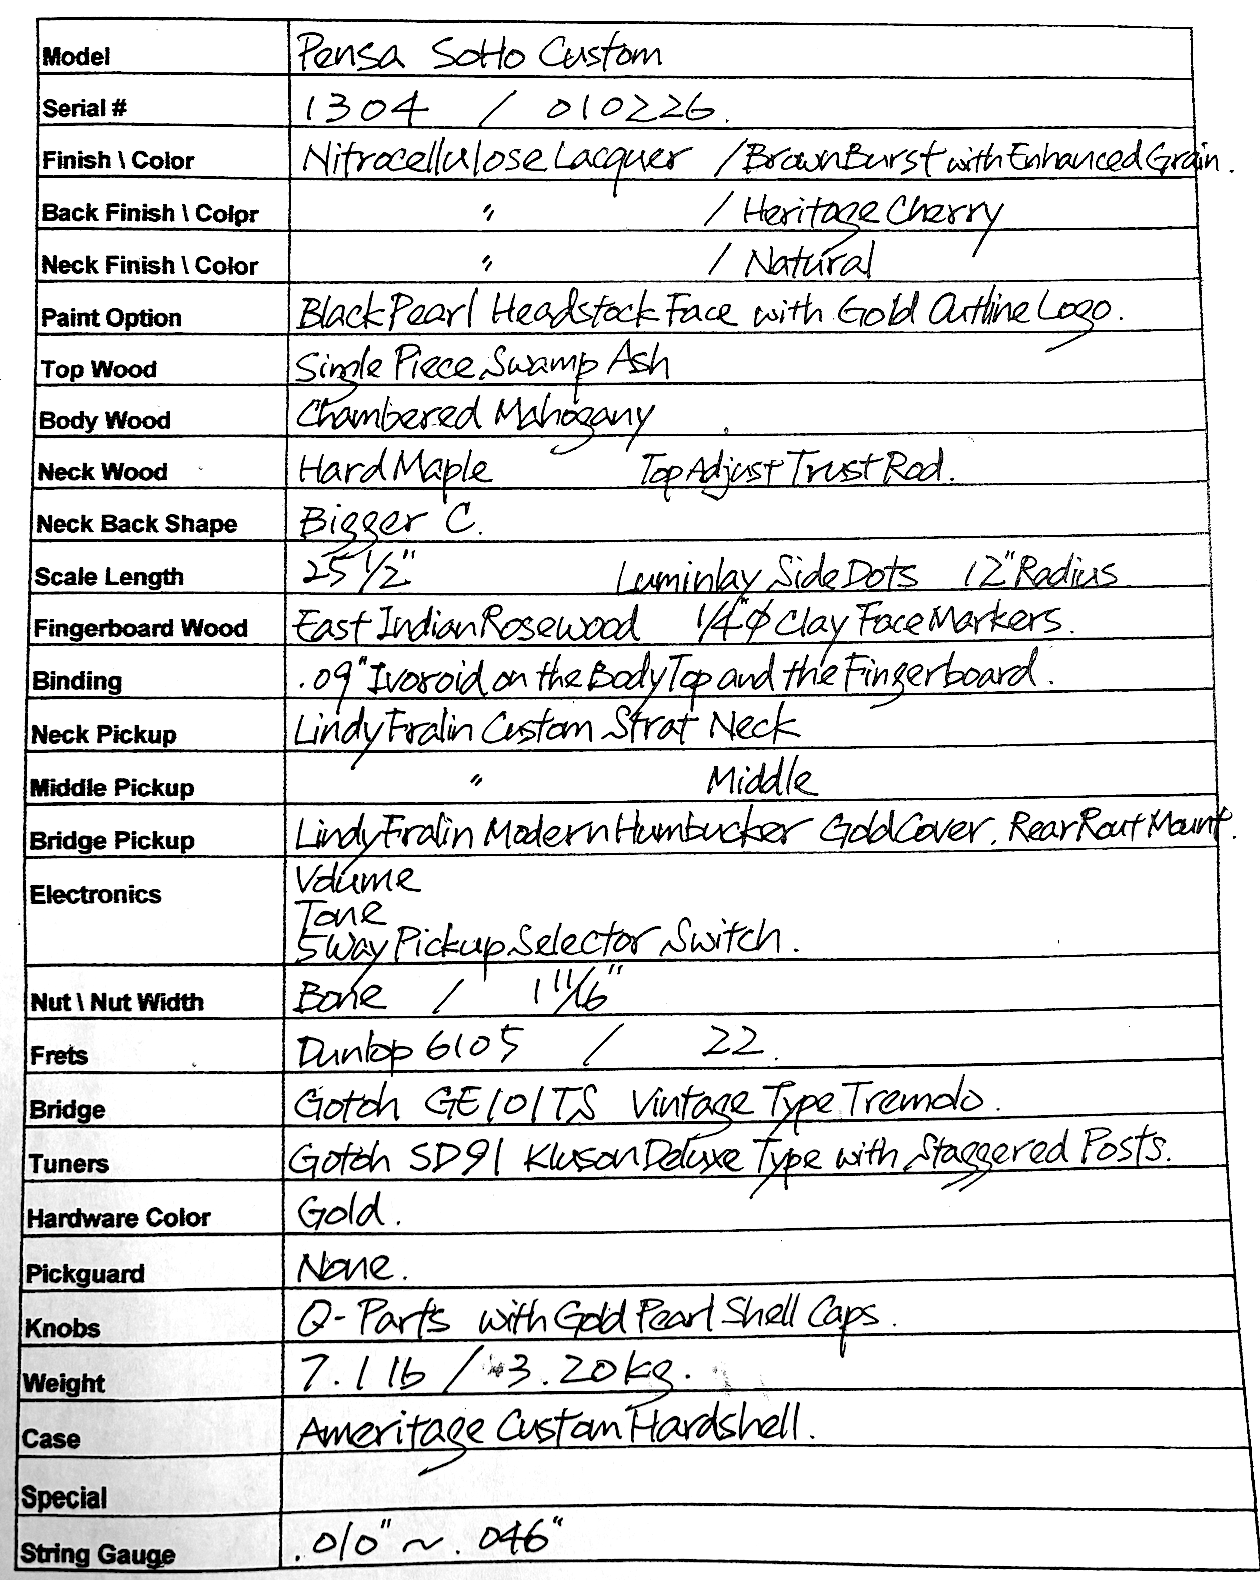 Model Pensa SoHo Custom
Serial # 1304 / 010226.
Finish \ Color Nitrocellulose Lacquer / Brown Burst with Enhanced Grain.
Back Finish \ Color 〃 / Heritage Cherry
Neck Finish \ Color 〃 / Natural
Paint Option Black Pearl Headstock Face with Gold Outline Logo.
Top Wood Single Piece Swamp Ash
Body Wood Chambered Mahogany
Neck Wood Hard Maple Top Adjust Trust Rod.
Neck Back Shape Bigger C.
Scale Length 25 1/2" Luminlay Side Dots 12" Radius
Fingerboard Wood East Indian Rosewood 1/4"φ Clay Face Markers.
Binding .09" Ivoroid on the Body Top and the Fingerboard.
Neck Pickup Lindy Fralin Custom Strat Neck
Middle Pickup 〃 Middle
Bridge Pickup Lindy Fralin Modern Humbucker Gold Cover. Rear Rout Mount.
Electronics Volume
Tone
5 Way Pickup Selector Switch.
Nut \ Nut Width Bone / 1 11/16"
Frets Dunlop 6105 / 22.
Bridge Gotoh GE101TS Vintage Type Tremolo.
Tuners Gotoh SD91 Kluson Deluxe Type with Staggered Posts.
Hardware Color Gold.
Pickguard None.
Knobs Q-Parts with Gold Pearl Shell Caps.
Weight 7.1 lb / 3.20kg.
Case Ameritage Custom Hardshell.
Special
String Gauge .010" ~ .046"